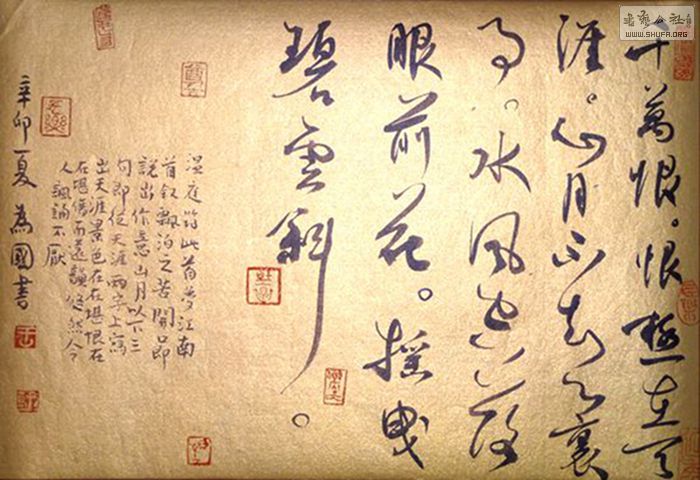 千萬恨。恨極在天
涯。山月不知心裏
事。水風空落
眼前花。摇曳
碧雲斜。
温庭筠此首夢江南
首叙飄泊之苦開口即
說出作意山月以下三
句即從天涯兩字上寫
出天涯景色在在堪恨在
在堪傷而遠韻悠然令
人諷誦不厭
辛卯夏為國書
書藝公社
WWW.SHUFA.ORG